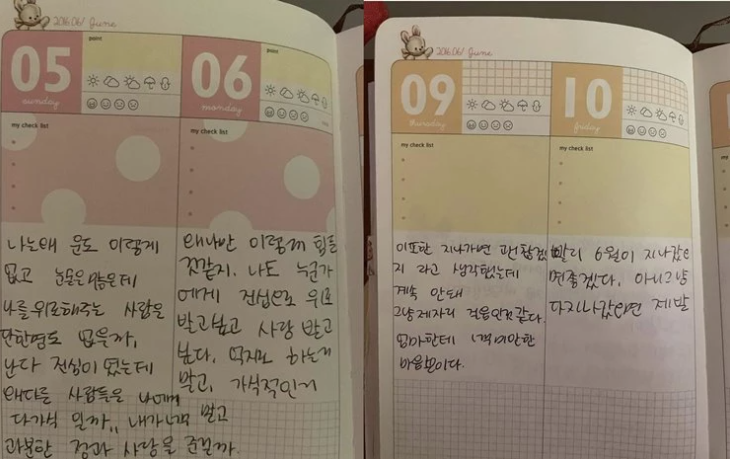 2016.06/ June
05
sunday
point
my check list
나는왜 운도 이렇게
없고
나를위로해주는 사람은
단한명도 없을까,
난다 진심이 였는데
왜다른 사람들은 나에게
다가식 일까,, 내가너무 많고
과분한 정과 사랑을 준걸까.
06
monday
point
my check list
왜나만 이렇게 힘든
것같지. 나도 누군가
에게 진심으로 위로
받고싶고 사랑 받고
싶다. 억지로 하는거
말고, 가식적인거
말고
2016.06/ June
09
thursday
my check list
이또한 지나가면 괜찮겠
지 라고 생각했는데
계속 안돼
그냥제자리 걸음인것같다.
엄마한테 너무미안한
마음뿐이다.
10
friday
my check list
빨리 6월이 지나갔으
면좋겠다. 아니그냥
다지나갔으면 제발